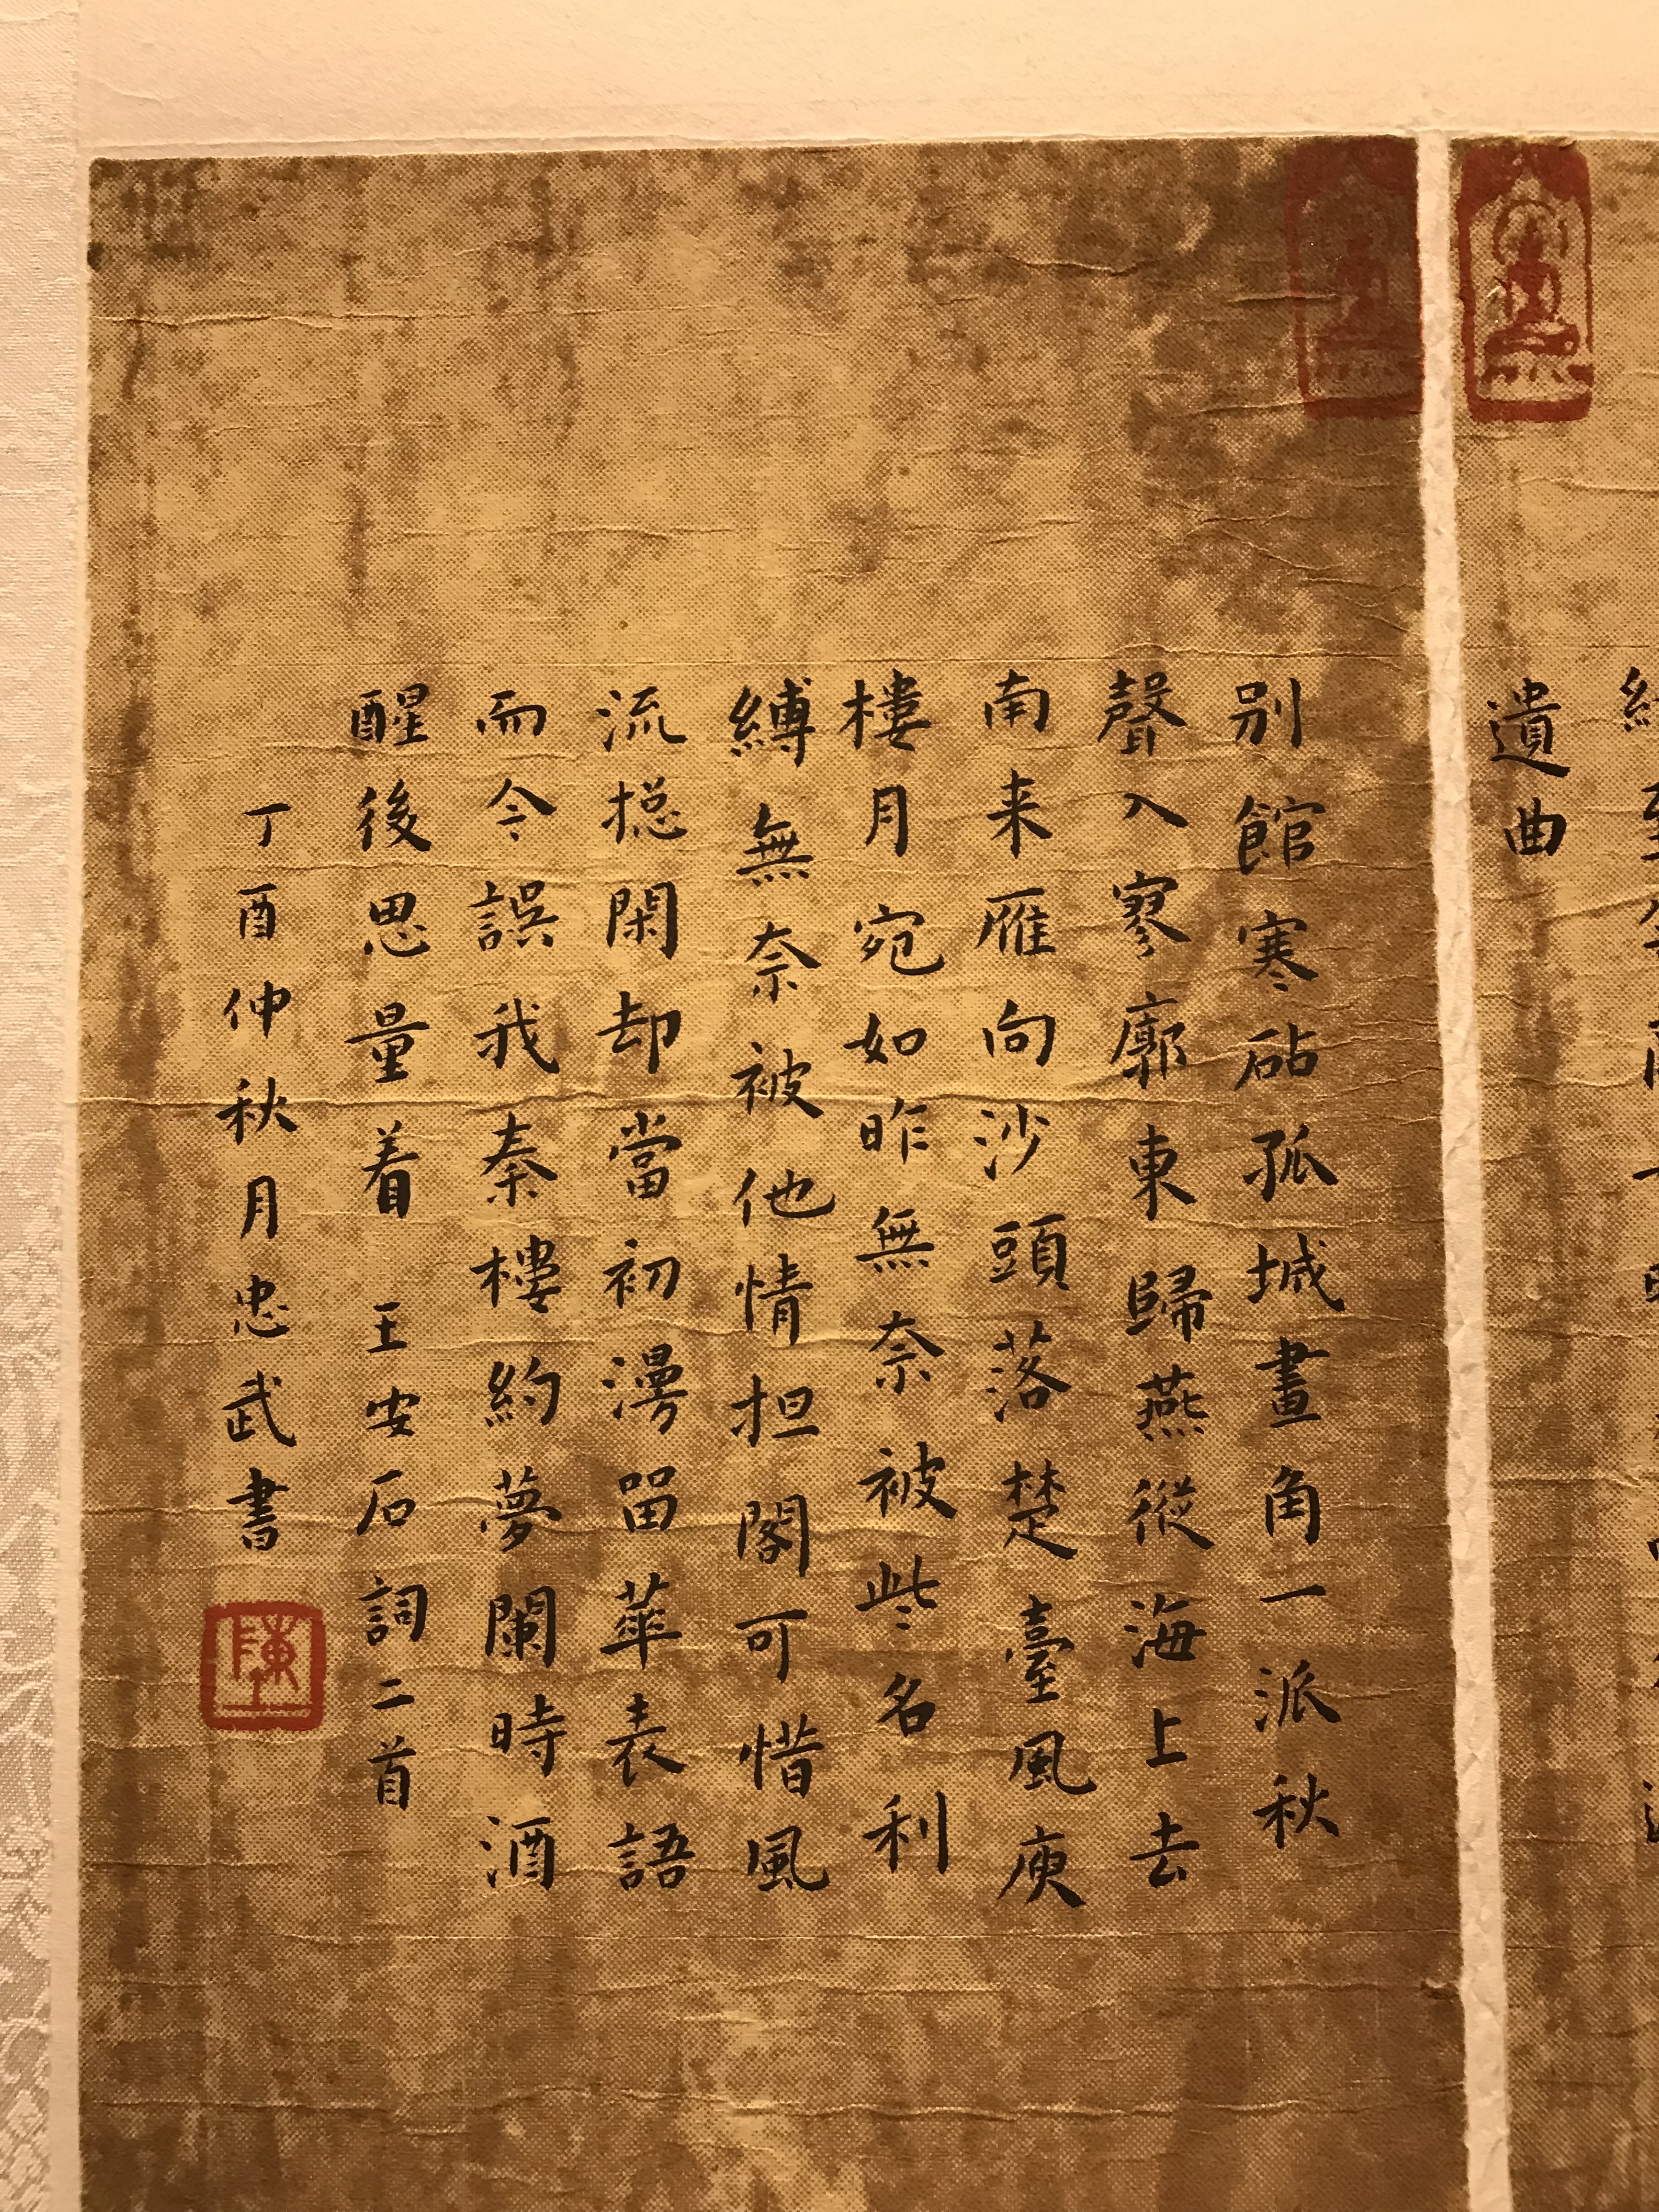 遺曲
别館寒砧孤城畫角一派秋
聲入寥廓東歸燕從海上去
南来雁向沙頭落楚臺風庾
樓月宛如昨無奈被些名利
縛無奈被他情担閣可惜風
流摠閑却當初漫留華表語
而今誤我秦樓約夢闌時酒
醒後思量着 王安石詞二首
丁酉仲秋月忠武書
陳